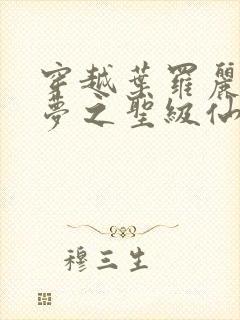 穿越葉羅麗
夢之聖級仙
穆三生